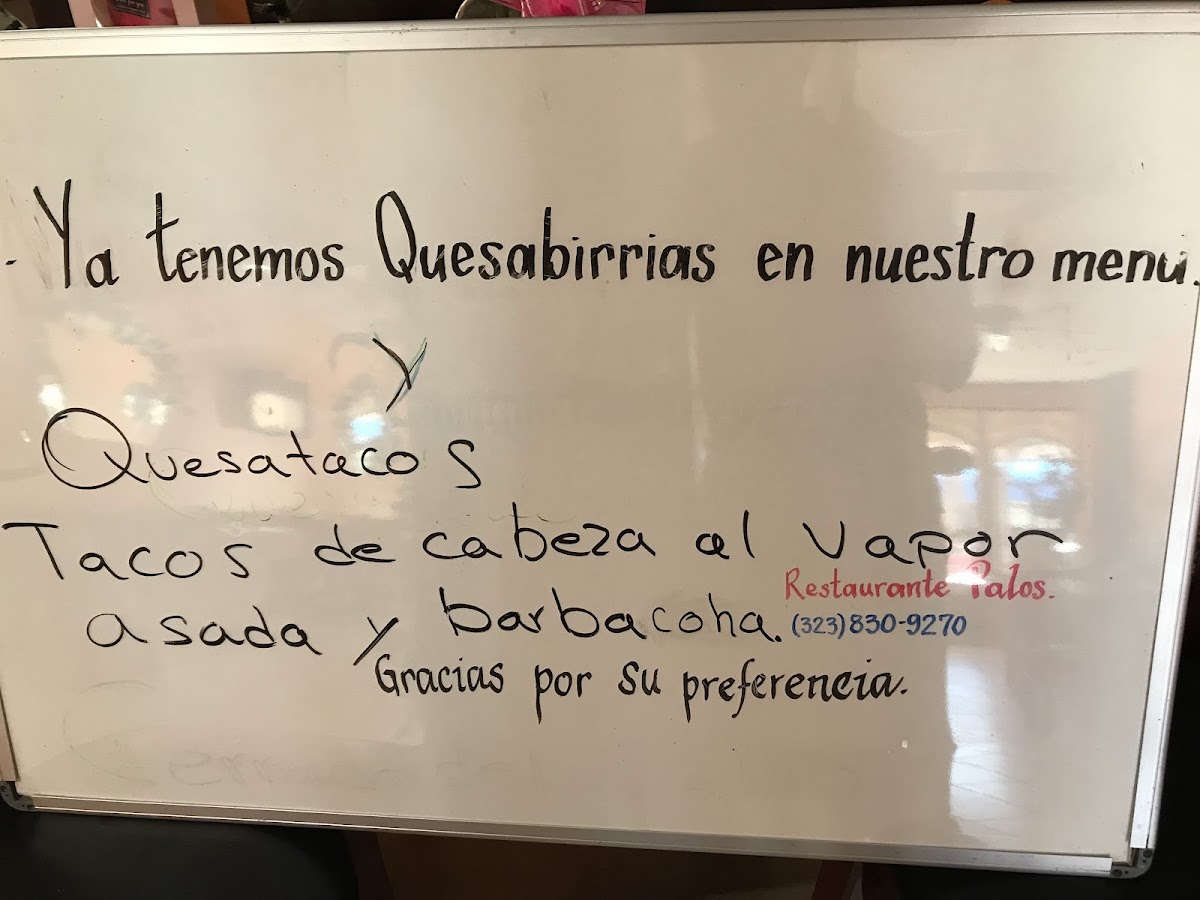 Ya tenemos Quesabirrias en nuestro menú.
y
Quesatacos
Tacos de cabeza al vapor
Restaurante Palos.
asada y barbacoha.
(323) 830-9270
Gracias por su preferencia.